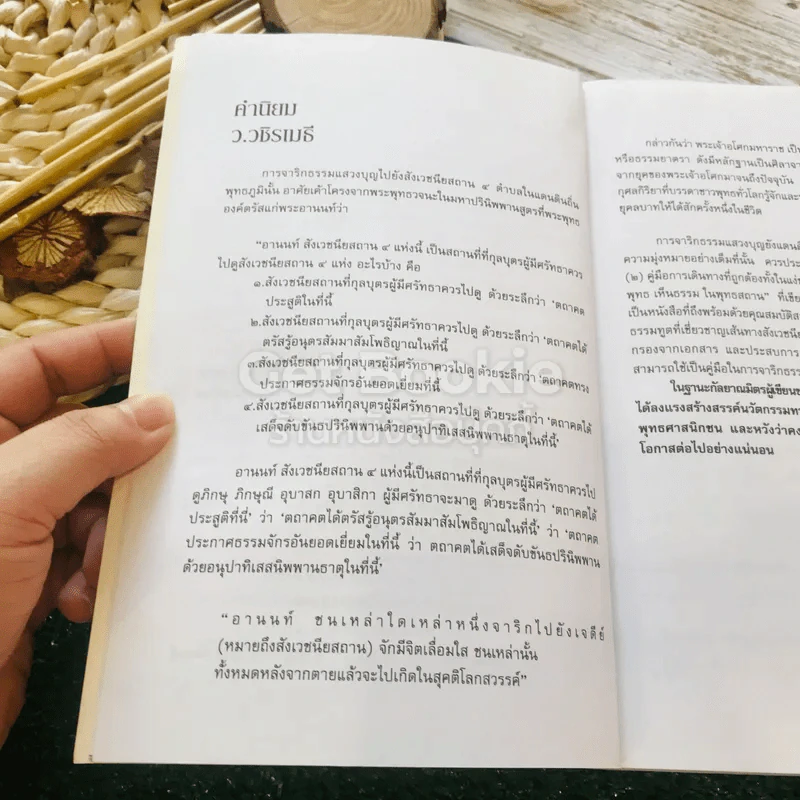 คำนิยม
ว.วชิรเมธี
การจาริกธรรมแสวงบุญไปยังสังเวชนียสถาน ๔ ตำบลในแดนดินถิ่น
พุทธภูมินั้น อาศัยเค้าโครงจากพระพุทธวจนะในมหาปรินิพพานสูตรที่พระพุทธ
องค์ตรัสแก่พระอานนท์ว่า
“อานนท์ สังเวชนียสถาน ๔ แห่งนี้ เป็นสถานที่ที่กุลบุตรผู้มีศรัทธาควร
ไปดูสังเวชนียสถาน ๔ แห่ง อะไรบ้าง คือ
๑.สังเวชนียสถานที่กุลบุตรผู้มีศรัทธาควรไปดู ด้วยระลึกว่า ‘ตถาคต
ประสูติในที่นี้
๒.สังเวชนียสถานที่กุลบุตรผู้มีศรัทธาควรไปดู ด้วยระลึกว่า ‘ตถาคตได้
ตรัสรู้อนุตรสัมมาสัมโพธิญาณในที่นี้
๓.สังเวชนียสถานที่กุลบุตรผู้มีศรัทธาควรไปดู ด้วยระลึกว่า ‘ตถาคตทรง
ประกาศธรรมจักรอันยอดเยี่ยมที่นี้
๔.สังเวชนียสถานที่กุลบุตรผู้มีศรัทธาควรไปดู ด้วยระลึกว่า ‘ตถาคตได้
เสด็จดับขันธปรินิพพานด้วยอนุปาทิเสสนิพพานธาตุในที่นี้’
อานนท์ สังเวชนียสถาน ๔ แห่งนี้เป็นสถานที่ที่กุลบุตรผู้มีศรัทธาควรไป
ดูภิกษุ ภิกษุณี อุบาสก อุบาสิกา ผู้มีศรัทธาจะมาดู ด้วยระลึกว่า ‘ตถาคตได้
ประสูติที่นี่’ ว่า ‘ตถาคตได้ตรัสรู้อนุตรสัมมาสัมโพธิญาณในที่นี้’ ว่า ‘ตถาคต
ประกาศธรรมจักรอันยอดเยี่ยมในที่นี้ ว่า ตถาคตได้เสด็จดับขันธปรินิพพาน
ด้วยอนุปาทิเสสนิพพานธาตุในที่นี้’
“อานนท์ ชนเหล่าใดเหล่าหนึ่งจาริกไปยังเจดีย์
(หมายถึงสังเวชนียสถาน) จักมีจิตเลื่อมใส ชนเหล่านั้น
ทั้งหมดหลังจากตายแล้วจะไปเกิดในสุคติโลกสวรรค์”
กล่าวกันว่า พระเจ้าอโศกมหาราช เป็
หรือธรรมยาตรา ดังมีหลักฐานเป็นศิลาจา
จากยุคของพระเจ้าอโศกมาจนถึงปัจจุบัน
กุศลกิริยาที่บรรดาชาวพุทธทั่วโลกรู้จักและ
ยุคลบาทให้ได้สักครั้งหนึ่งในชีวิต
การจาริกธรรมแสวงบุญยังแดน
ความมุ่งหมายอย่างเต็มที่นั้น ควรประ
(๒) คู่มือการเดินทางที่ถูกต้องทั้งในแง่
พุทธ เห็นธรรม ในพุทธสถาน” ที่เขีย
เป็นหนังสือที่ถึงพร้อมด้วยคุณสมบัติส
ธรรมทูตที่เชี่ยวชาญเส้นทางสังเวชนีย
กรองจากเอกสาร และประสบการ
สามารถใช้เป็นคู่มือในการจาริกธรร
ในฐานะกัลยาณมิตรผู้เขียน
ได้ลงแรงสร้างสรรค์นวัตกรรมท
พุทธศาสนิกชน และหวังว่าคง
โอกาสต่อไปอย่างแน่นอน